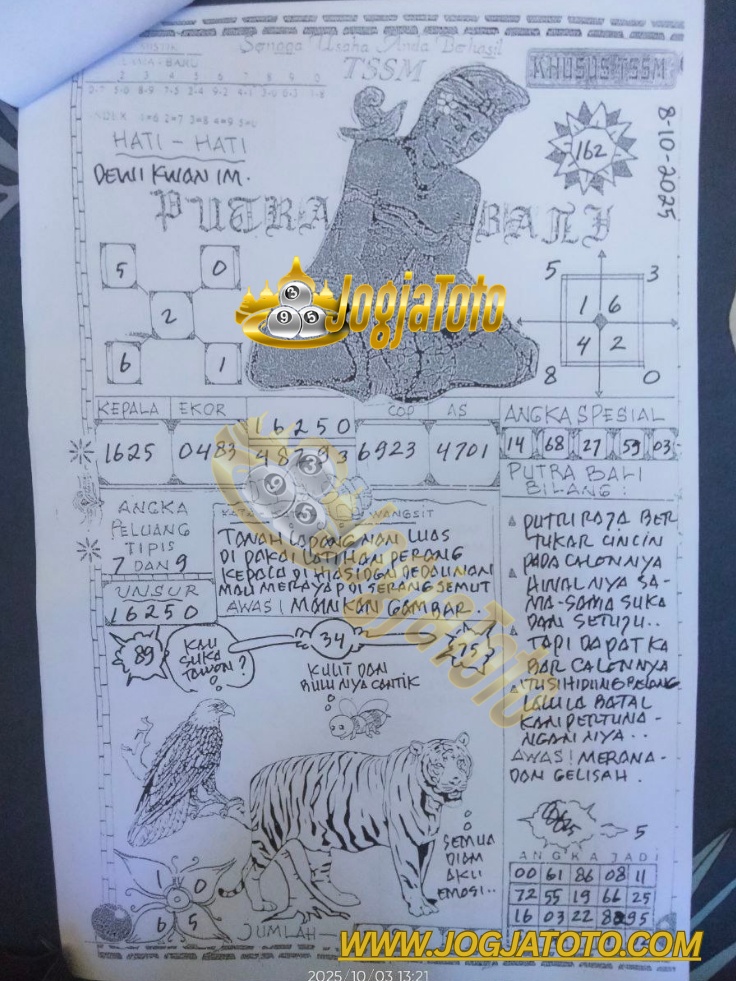 Semoga Usaha Anda Berhasil
TSSM
KHUSUS TSSM
LAMA - BARU
2 3 4 5 6 7 8 9 0
1=6 2=7 3=8 4=9 5=0
HATI - HATI
DEWI KWAN IM.
162
8-10-2025
PUTRA BALI
5 0
2
6 1
JogjaToto
3
9 5
5 3
1 6
4 2
8 0
KEPALA EKOR COP AS
1625 0483 16250 6923 4701
48793
ANGKA SPESIAL
14 68 27 59 03
ANGKA
PELUANG
TIPIS
7 DAN 9
UNSUR
16250
WANGSIT
TANAH LAPANGNAN LUAS
DI PAKAI LATIHAN PERANG
KEPALA DI HIASI DGN DEDAUNAN
MAU MERAYAP DI SERANG SEMUT
AWAS! MAINKAN GAMBAR
PUTRA BALI
BILANG :
PUTRI RAJA BER
TUKAR CINCIN
PADA CALONNYA
AWALNYA SA-
MA-SAMA SUKA
DAN SETUJU..
TAPI DAPAT KA
BAR CALONNYA
ITU SI HIDUNG BELANG
LALU LA BATAL
KAN PERTUNA-
NGANNYA..
AWAS! MERANA-
DAN GELISAH.
89
KAU
SUKA
TAWON?
34
75
KULIT DAN
BULUNYA CANTIK
SEMUA
DIAM
AKU
EMOSI..
5
ANGKA JADI
00 61 86 08 11
72 55 19 66 25
16 03 22 88 95
1 0
6 5
JUMLAH
JogjaToto
WWW.JOGJATOTO.COM
2025/10/03 13:21